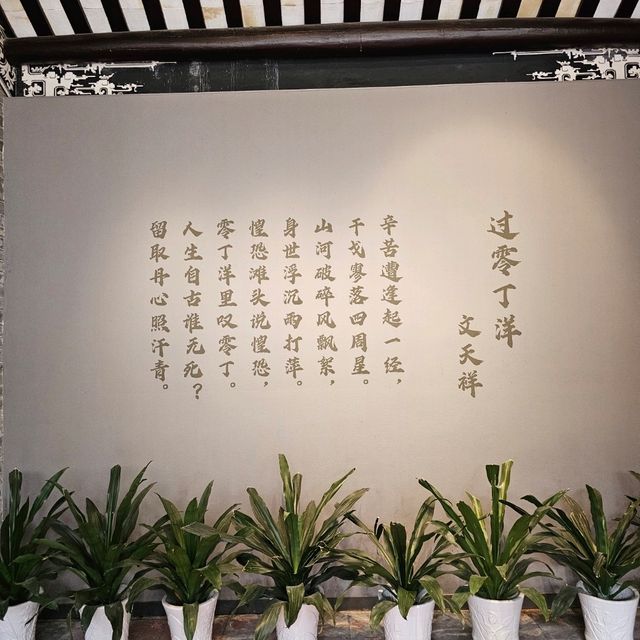 过零丁洋
文天祥
辛苦遭逢起一经，
干戈寥落四周星。
山河破碎风飘絮，
身世浮沉雨打萍。
惶恐滩头说惶恐，
零丁洋里叹零丁。
人生自古谁无死？
留取丹心照汗青。